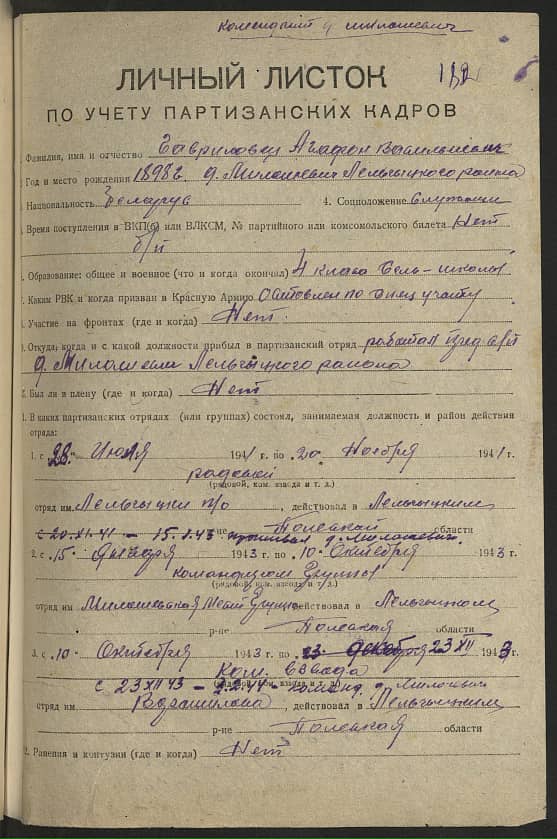 Комендант д. Милошевич
ЛИЧНЫЙ ЛИСТОК
ПО УЧЕТУ ПАРТИЗАНСКИХ КАДРОВ
Фамилия, имя и отчество Гавриловец Агафон Васильевич
Год и место рождения 1898 г. д. Милошевич Лельчицкого района
Национальность Беларус 4. Соцположение Служащий
Время поступления в ВКП(б) или ВЛКСМ, № партийного или комсомольского билета Нет
б/п
Образование: общее и военное (что и когда окончал) 4 класа Сель-школы
Каким РВК и когда призван в Красную Армию Оставлен по спец учету
Участие на фронтах (где и когда) Нет.
Откуда, когда и с какой должности прибыл в партизанский отряд работал пред
д. Милошевич Лельчицкого района
Был ли в плену (где и когда) Нет
1. В каких партизанских отрядах (или группах) состоял, занимаемая должность и район действия
отряда:
1. с „28“ Июля 1941 г. по „20“ Ноября 1941 г.
радовой
(рядовой, ком. взвода и т. д.)
отряд им. Лельчицки п/о, действовал в Лельчицким
р-не Полеской области
с 20.XI.41 — 15.1.43 проживал д. Милошевич.
2. с „15“ Января 1943 г. по „10“ Октебря 1943 г.
командиром Групы
(рядовой, ком. взвода и т. д.)
отряд им Милошевская Группа действовал в Лельчицком
р-не Полеская области
3. с „10“ Октебря 1943 г. по 23 Декабря 23 XII 1943 г.
Ком. взвода
(рядовой, ком. взвода и т. д.)
с 23 XII 43 — 2.2.44 — д. Милошевич
отряд им Ворошилова, действовал в Лельчицким
р-не Полеская области
2. Ранения и контузии (где и когда) Нет